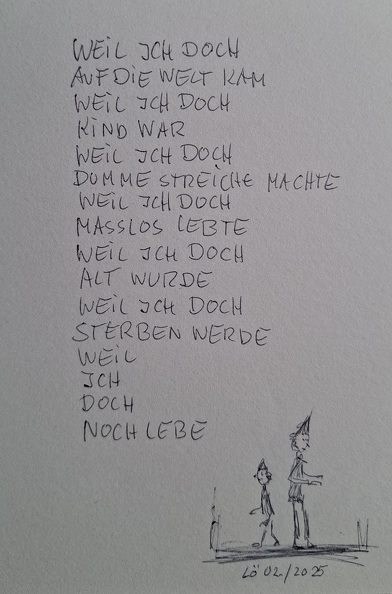 WEIL ICH DOCH
AUF DIE WELT KAM
WEIL ICH DOCH
KIND WAR
WEIL ICH DOCH
DUMME STREICHE MACHTE
WEIL ICH DOCH
MASSLOS LEBTE
WEIL ICH DOCH
ALT WURDE
WEIL ICH DOCH
STERBEN WERDE
WEIL
ICH
DOCH
NOCH LEBE
Lö 02/2025